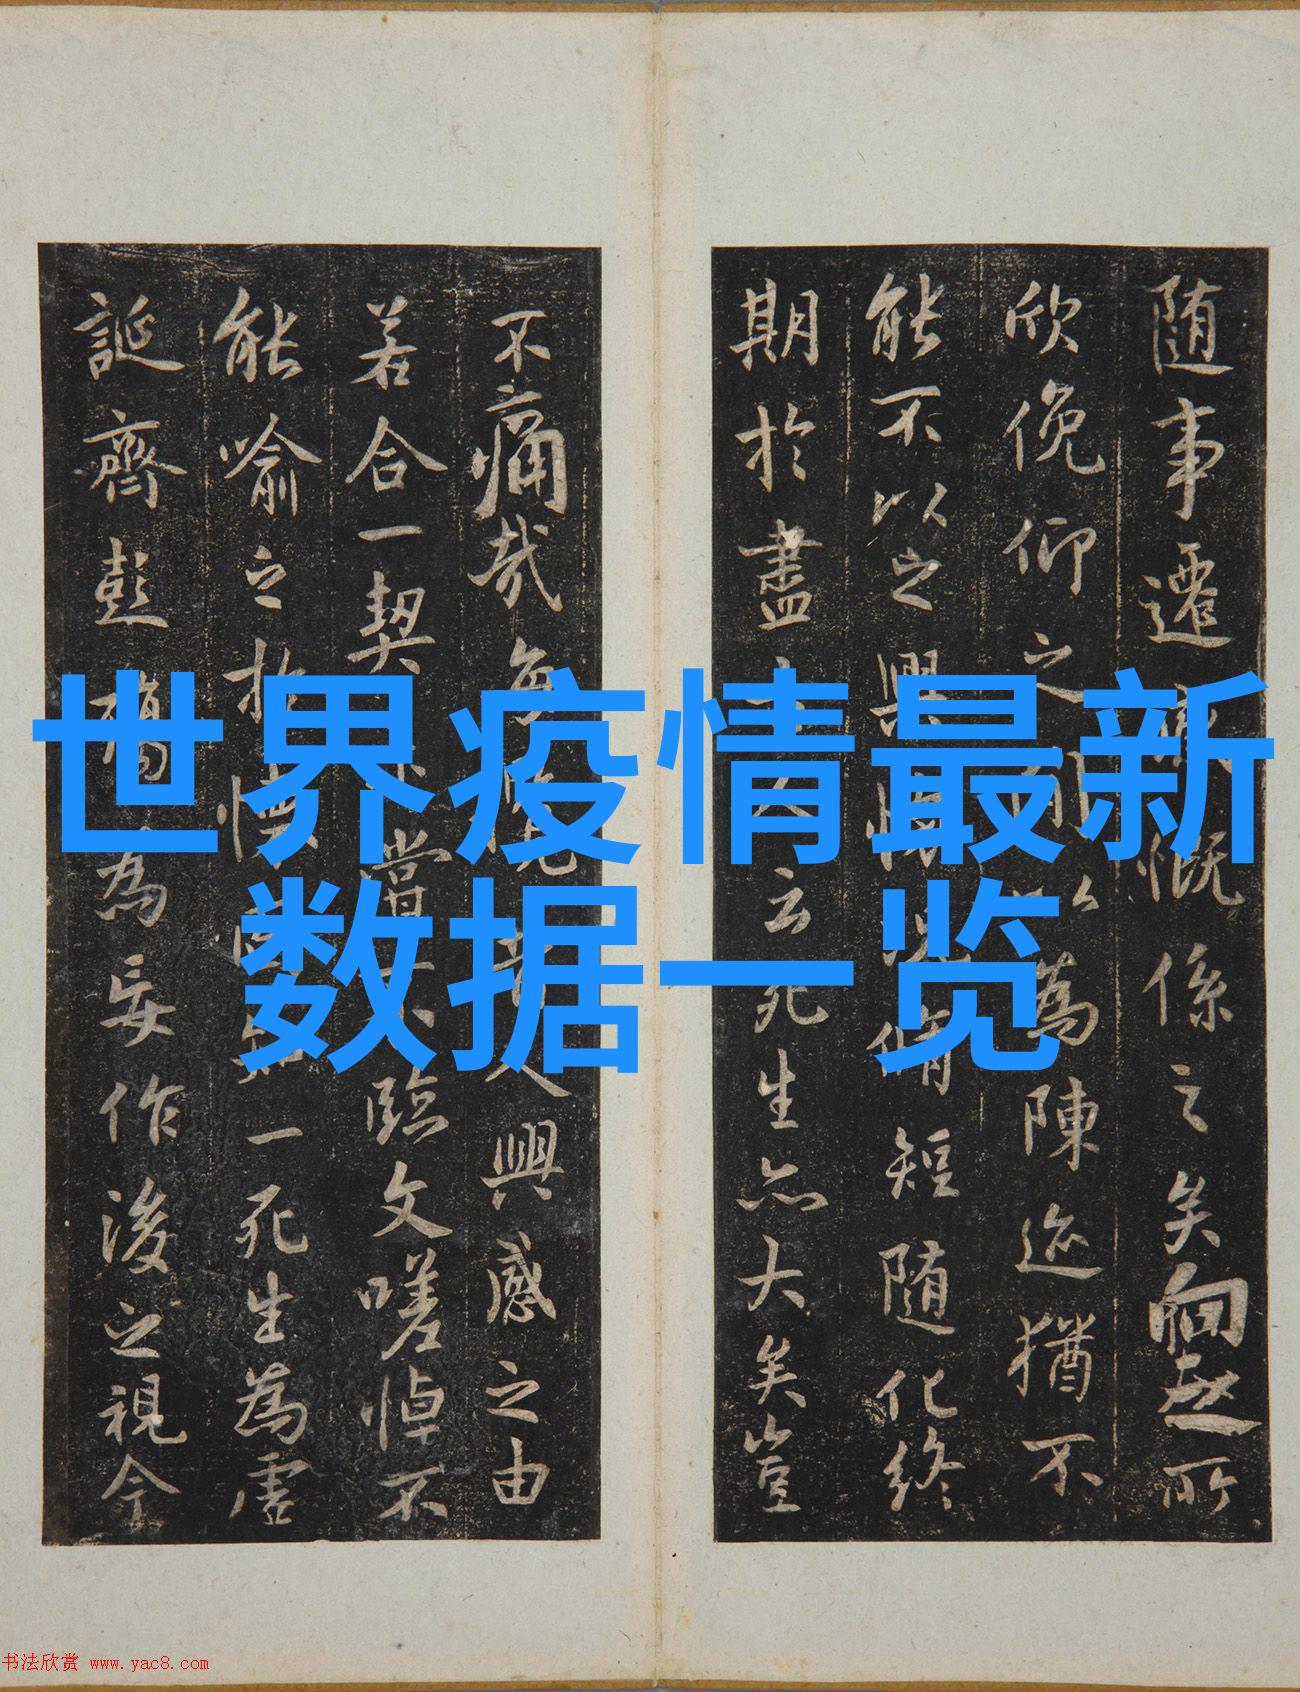 世界疫情最新
数据一览
随事遷慨係之矣向之所
欣俛仰之以為陳迹猶不
能不以之興脩短随化終
期於盡人云死生亦大矣豈
不痛哉每昔人興感之由
若合一契嘗不臨文嗟悼不
能喻之於懷一死生為虚
誕齊彭殤為妄作後之視今
书法欣赏 www.yac8.com